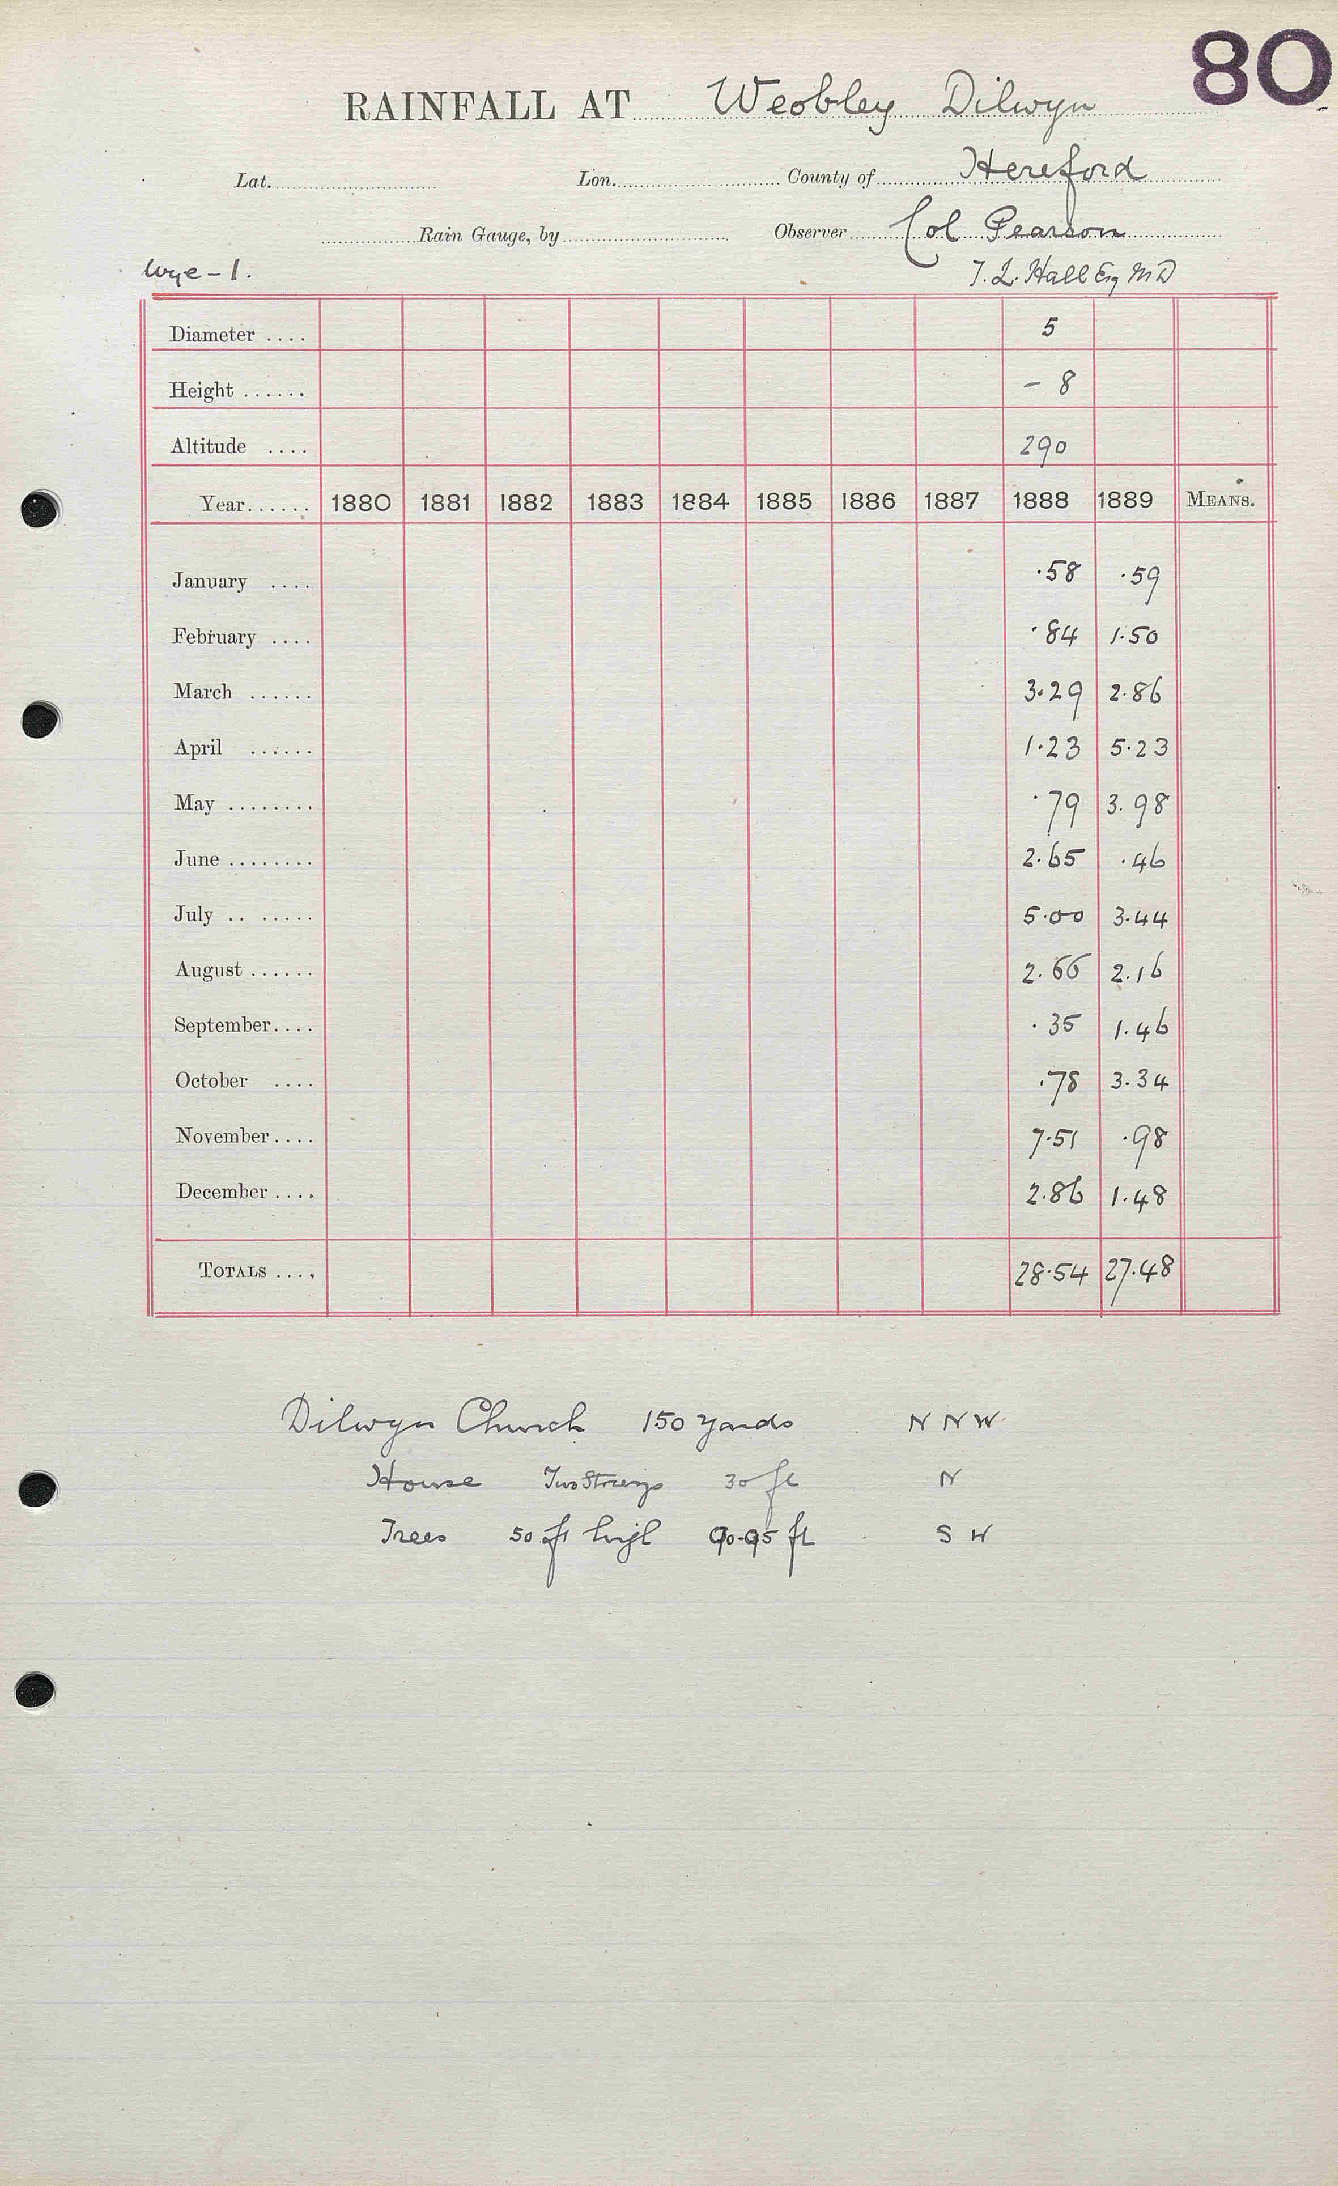 80
RAINFALL AT Weobley Dilwyn
Lat. Lon. County of Hereford
Rain Gauge, by Observer Col Pearson
Wye - 1. T. L. Hall Esq MD
Diameter .... 5
Height ...... - 8
Altitude .... 290
Year...... 1880 1881 1882 1883 1884 1885 1886 1887 1888 1889 MEANS.
January .... .58 .59
February .... .84 1.50
March ...... 3.29 2.86
April ...... 1.23 5.23
May ........ .79 3.98
June ........ 2.65 .46
July .. ...... 5.00 3.44
August ...... 2.66 2.16
September.... .35 1.46
October .... .78 3.34
November.... 7.51 .98
December .... 2.86 1.48
TOTALS .... 28.54 27.48
Dilwyn Church 150 yards N N W
House Two Storeys 30 ft N
Trees 50 ft high 90-95 ft S W